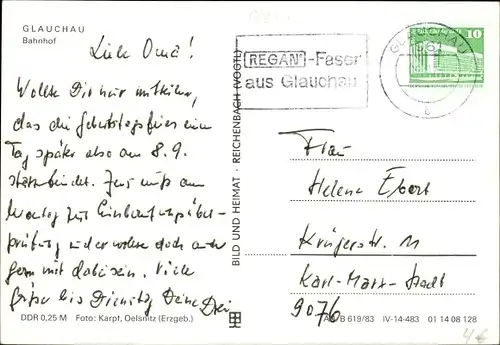 GLAUCHAU
Bahnhof
Liebe Oma!
Wollte Dir nur mitteilen,
das die Geburtstagsfeier einen
Tag später also am 8.9.
stattfindet. muß am
Montag zur
prüfung und er wollte doch auch
gern mit dabeisein. Viele
Grüße bis Dienstag Deine Drei
DDR 0,25 M Foto: Karpf, Oelsnitz (Erzgeb.)
BILD UND HEIMAT · REICHENBACH (VOGTL)
REGAN®-Faser
aus Glauchau
GLAUCHAU
961
b
10
Frau
Helene Ebert
Krügerstr. 11
Karl-Marx-Stadt
9076
619/83 IV-14-483 01 14 08 128
4€